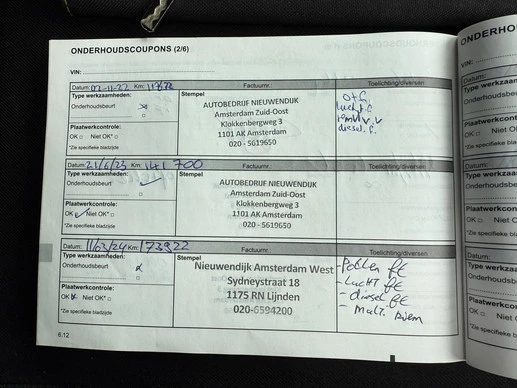 ONDERHOUDSCOUPONS (2/6)
VIN:
Datum: 02-11-22 Km: Factuurnr.: Toelichting/diversen
Type werkzaamheden:
Onderhoudsbeurt
Plaatwerkcontrole:
OK □ Niet OK* □
*Zie specifieke bladzijde
Stempel
AUTOBEDRIJF NIEUWENDIJK
Amsterdam Zuid-Oost
Klokkenbergweg 3
1101 AK Amsterdam
020 - 5619650
o+f.
lucht.f.
remvl.v.v
diesel.f.
Datum: 21/6/23 Km: 141 700 Factuurnr.: Toelichting/diversen
Type werkzaamheden:
Onderhoudsbeurt
Plaatwerkcontrole:
OK Niet OK* □
*Zie specifieke bladzijde
Stempel
AUTOBEDRIJF NIEUWENDIJK
Amsterdam Zuid-Oost
Klokkenbergweg 3
1101 AK Amsterdam
020 - 5619650
Datum: 11/03/24 Km: 173922 Factuurnr.: Toelichting/diversen
Type werkzaamheden:
Onderhoudsbeurt
Plaatwerkcontrole:
OK Niet OK* □
*Zie specifieke bladzijde
Stempel
Nieuwendijk Amsterdam West
Sydneystraat 18
1175 RN Lijnden
020-6594200
- Pollen fe
- Lucht fe
- diesel fe
- Mult. Riem
6.12
ONDERHO
VIN:
Datum:
Type werkzaa
Onderhoudsbe
Plaatwerkcont
OK □ Niet OK
*Zie specifieke bla
Datum:
Type werkzaam
Onderhoudsbeu
Plaatwerkcontro
OK □ Niet OK*
*Zie specifieke blad
Datum:
Type werkzaamh
Onderhoudsbeurt
Plaatwerkcontrol
OK □ Niet OK* □
*Zie specifieke bladz